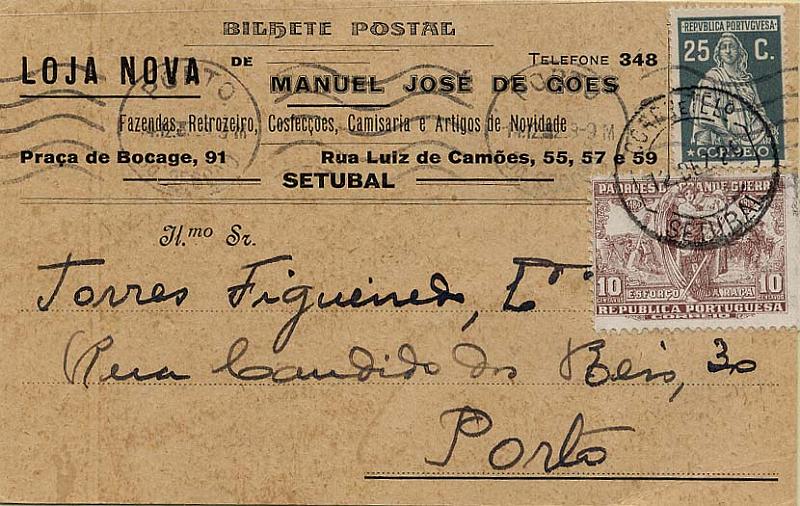 BILHETE POSTAL
LOJA NOVA DE TELEFONE 348
MANUEL JOSÉ DE GOES
Fazendas, Retrozeiro, Cosfecções, Camisaria e Artigos de Novidade
Praça de Bocage, 91 Rua Luiz de Camões, 55, 57 e 59
SETUBAL
REPVBLICA PORTVGVESA
25 C.
CORREIO
PADRÕES DA GRANDE GUERRA
10 CENTAVOS 10 CENTAVOS
ESFORÇO DA RAÇA
REPUBLICA PORTUGUESA
CORREIO
PORTO
PORTO
SETUBAL
Il.mo Sr.
Torres Figueiredo,
Rua Candido dos Reis, 30
Porto